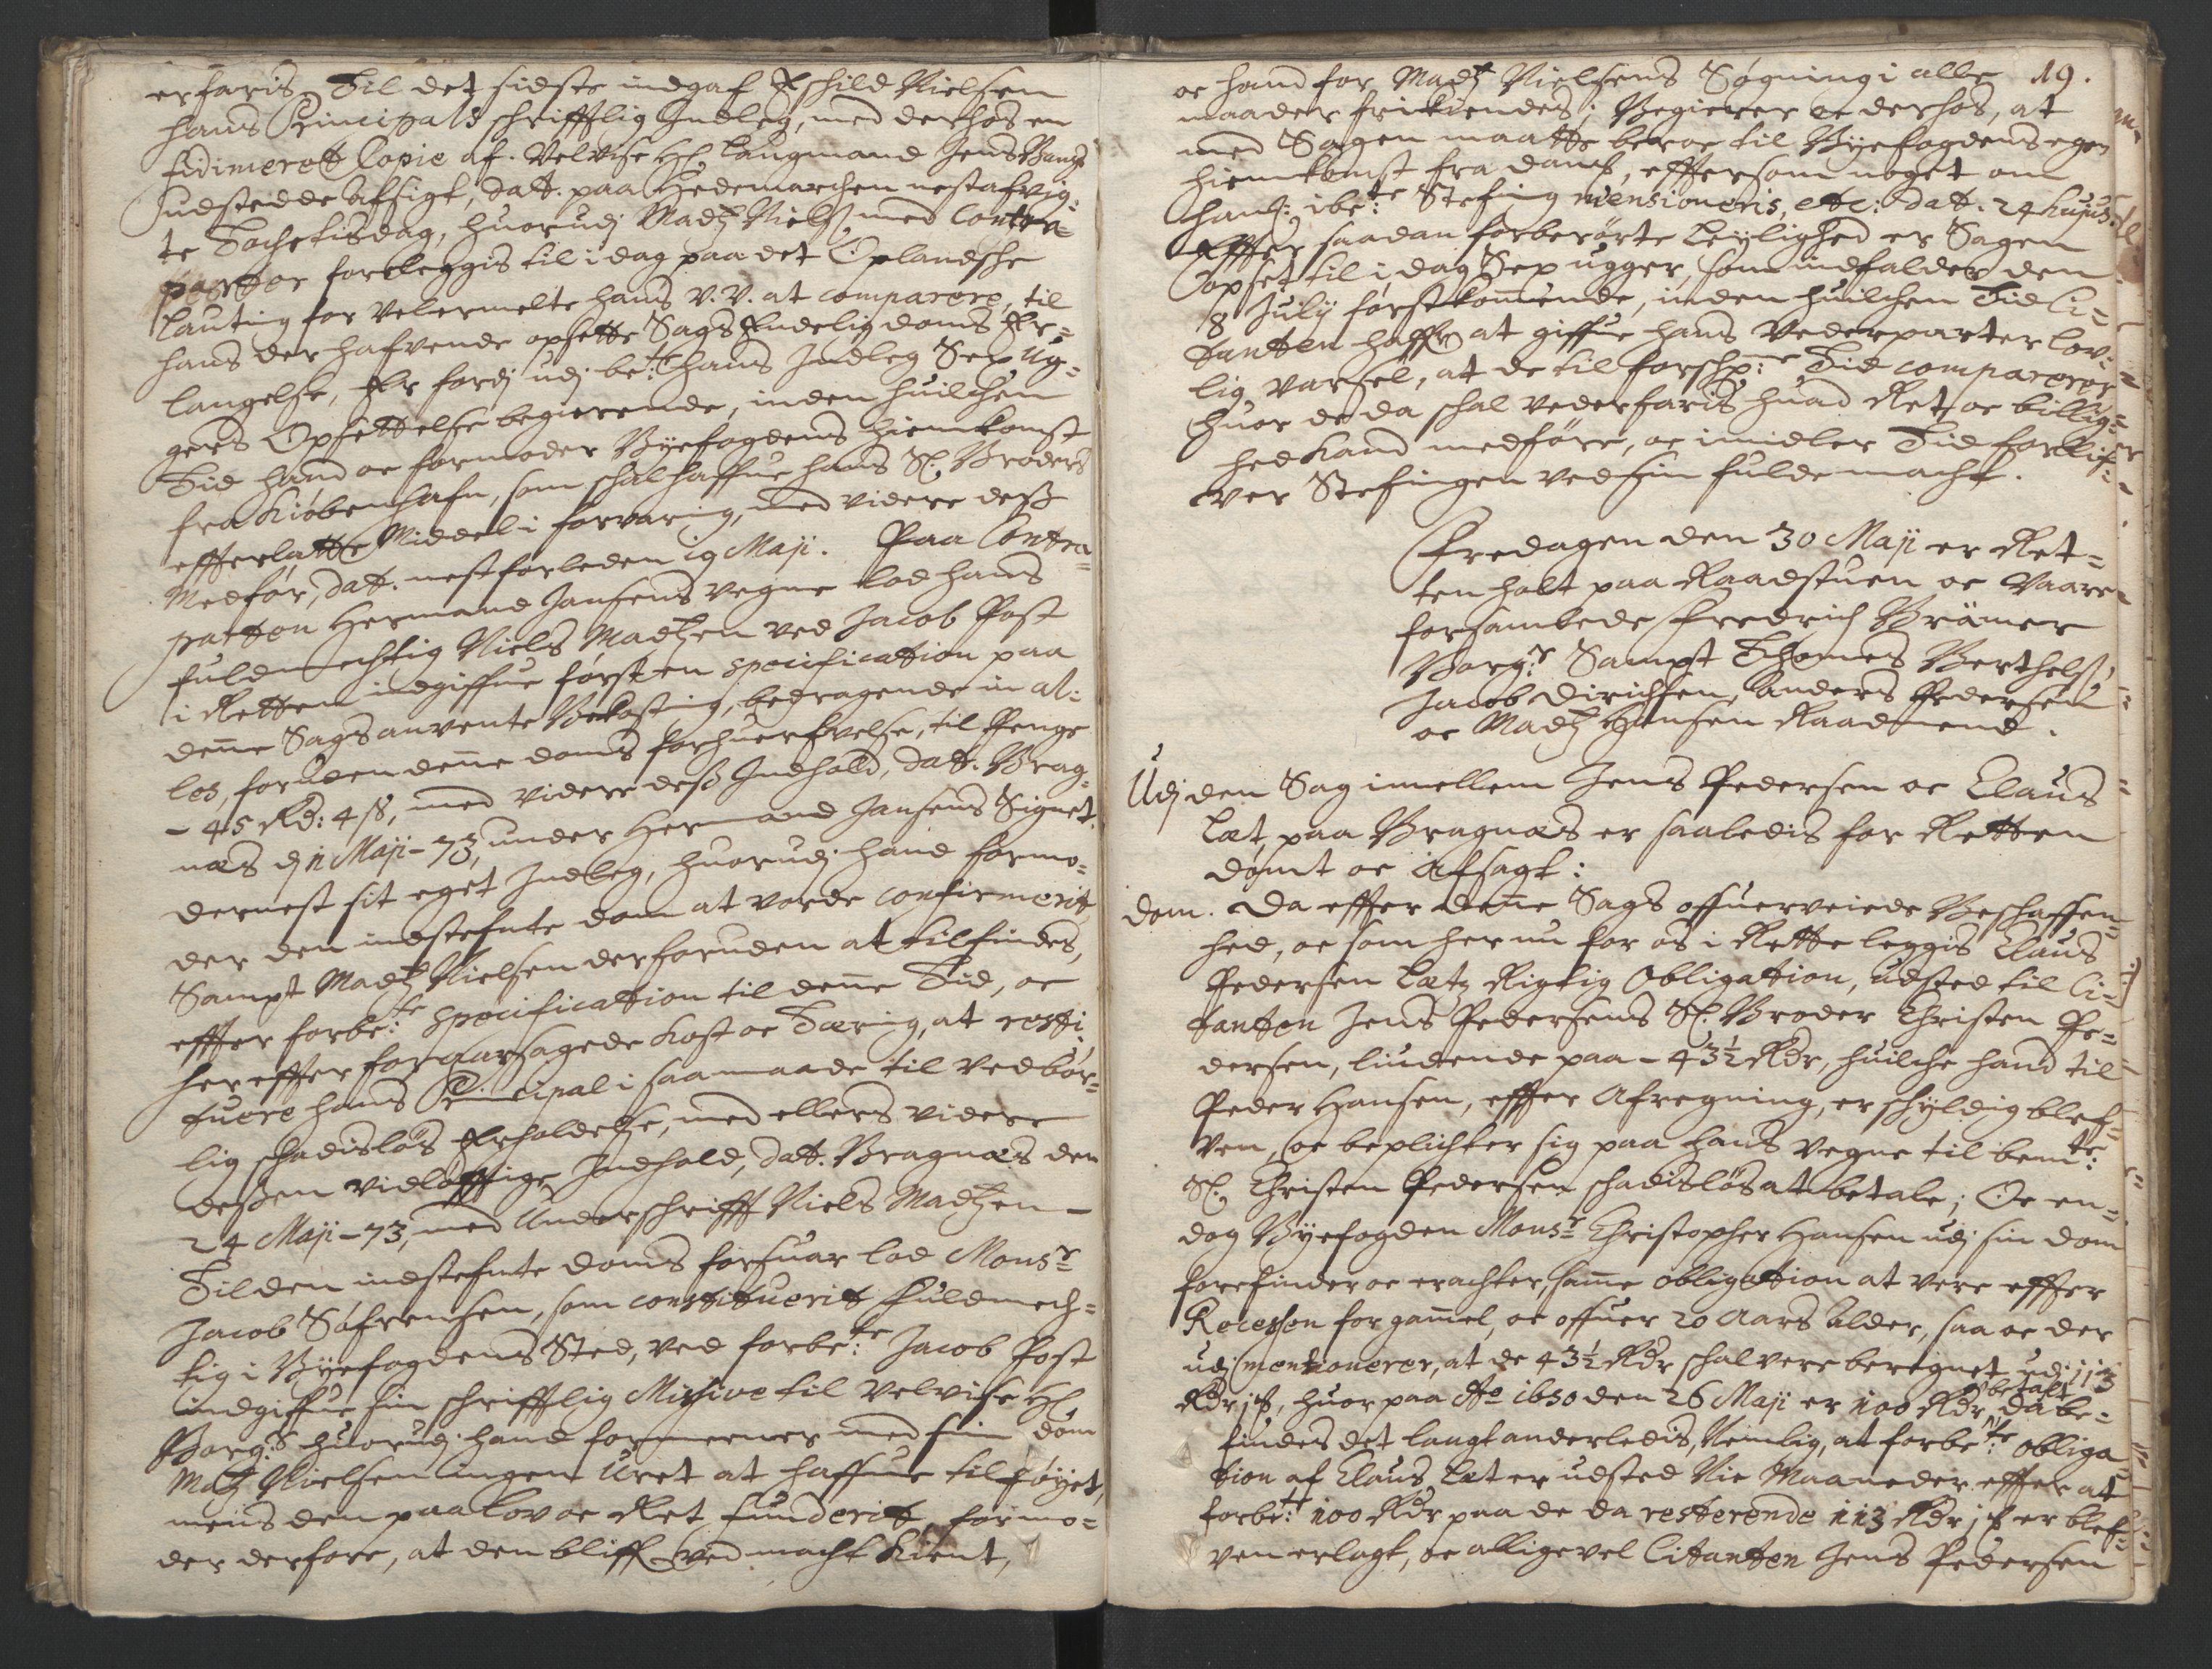 erfaris. Til det sidste indgaf Eschild Nielsen
hans Principals schrifftlig Indleg, med derhos en
fidimeret Copie af Velvise Hr. Laugmand Jens Bangs
udstedde Afsigt, dat. paa Hedemarchen nestafvig:
te Tochetisdag, huorudj Madz Niels: med Contra-
parter foreleggis til i dag paa det Oplandsche
Lauting for Velermelte hans V.V. at comparere, til
hans der hafvende opsette Sags Endelig doms Er=
langelse, Er fordj udj be:te hans Indleg Sex ug=
gers Opsettelse begierende, inden huilchen
Tid hand oc formoder Byefogdens hiemkomst
fra Kiøbenhafn, som schal haffue hans Sl. Broders
effterlatte Middel i forvaring, med videre deß
Medfør, dat. nestforleden 19 Maji. Paa Contra=
parten Hermand Jansens vegne lod hans
fuldmechtig Niels Madtzen ved Jacob Post
i Retten indgiffue først en specification paa
denne Sags anvente Bekosting, bedragende in al=
les, foruden denne doms forhuerfvelse, til Penge
- 45 Rd: 4 ß, med videre deß Indhold, dat. Brag=
næs dj 11 Maji - 73, under Hermand Jansens Signet.
dernest sit eget Indleg, huorudj hand formo=
der den indstefnte dom at vorde confirmerit
Sampt Madtz Nielsen derforuden at tilfindes,
effter forbe:te specification til denne Tid, oc
hereffter foraarsagede Kost oc Tæring, at resti
tuere hans Principal i saa maade til vedbør=
lig schadisløs Erholdelse, med ellers videre
deßen vidløfftige Indhold, dat. Bragnæs den
24 Maji - 73, med Underschrifft Niels Madtzen -
Til den indstefnte doms forsuar lod Monsr
Jacob Søfrensen, som constituerit fuldmech=
tig i Byefogdens Sted, ved forbe:te Jacob Post
indgiffue sin schrifftlig Missive til Velvise Hr
Borg:s huorudj hand formeener med sin dom
Matz Nielsen ingen Uret at haffue tilføyet,
mens den paa Lov oc Ret funderit, formo=
der derfore, at den bliffr ved macht kient,
19.
oc hand for Madtz Nielsens Søgning i alle
maader frikiendes; Begierer oc derhos, at
med Sagen maatte beroe til Byefogdens egen
hiemkomst fra danm:, effersom noget om
hans: ibe:te Stefning mensioneris, etc: dat. 24 hujus
Effter saadan forberørte Leylighed er Sagen
opset til i dag Sex ugger, som indfalder den
8 July førstkommende, inden huilchen Tid Ci=
tanten haffr at giffue hans Vederparter lov=
lig Varsel, at de til forschr:ne Tid comparerer
huor de da schal vederfaris huad Ret oc billig=
hed kand medføre, oc imidler Tid forblif=
ver Stefningen ved sin fulde macht.
Fredagen den 30 Maji er Ret=
ten holt paa Raadstuen oc vaare
forsamlede Fredrich Brämer
Borg:r Sampt Thomes Berthels:
Jacob Dirichsen, Anders Pedersen
oc Madtz Hansen Raadmend.
Udj den Sag imellem Jens Pedersen oc Claus
Læt, paa Bragnæs er saaledis for Retten
dømt oc Afsagt:
dom. Da effter denne Sags offuerveiede Beschaffen=
hed, oc som her nu for os i Rette leggis Claus
Pedersen Lætz Rigtig Obligation, udsted til Ci=
tanten Jens Pedersens Sl. Broder Christen Pe=
dersen, liudende paa - 43½ Rdr, huilche hand til
Peder Hansen, effter Afregning, er schyldig blef=
ven, oc beplichter sig paa hans vegne til bem:te
Sl. Christen Pedersen schadisløs at betale; Oc en=
dog Byefogden Monsr Christopher Hansen udj sin dom
forefinder oc erachter, samme obligation at vere effter
Recessen for gammel, oc offuer 20 Aars Alder, saa oc der
udj mentionerer, at de 43½ Rdr schal vere beregnet udj 113
Rdr j ß, huor paa Ao 1650 den 26 Maji er 100 Rdr betalt, da be=
findes det langt anderledis, Nemlig, at forbe:te obliga
tion af Claus Læt er udsted Nie Maaneder effter at
forbe:te 100 Rdr paa de da resterende 113 Rdr j ß er blef=
ven erlagt, oc alligevel Citanten Jens Pedersen